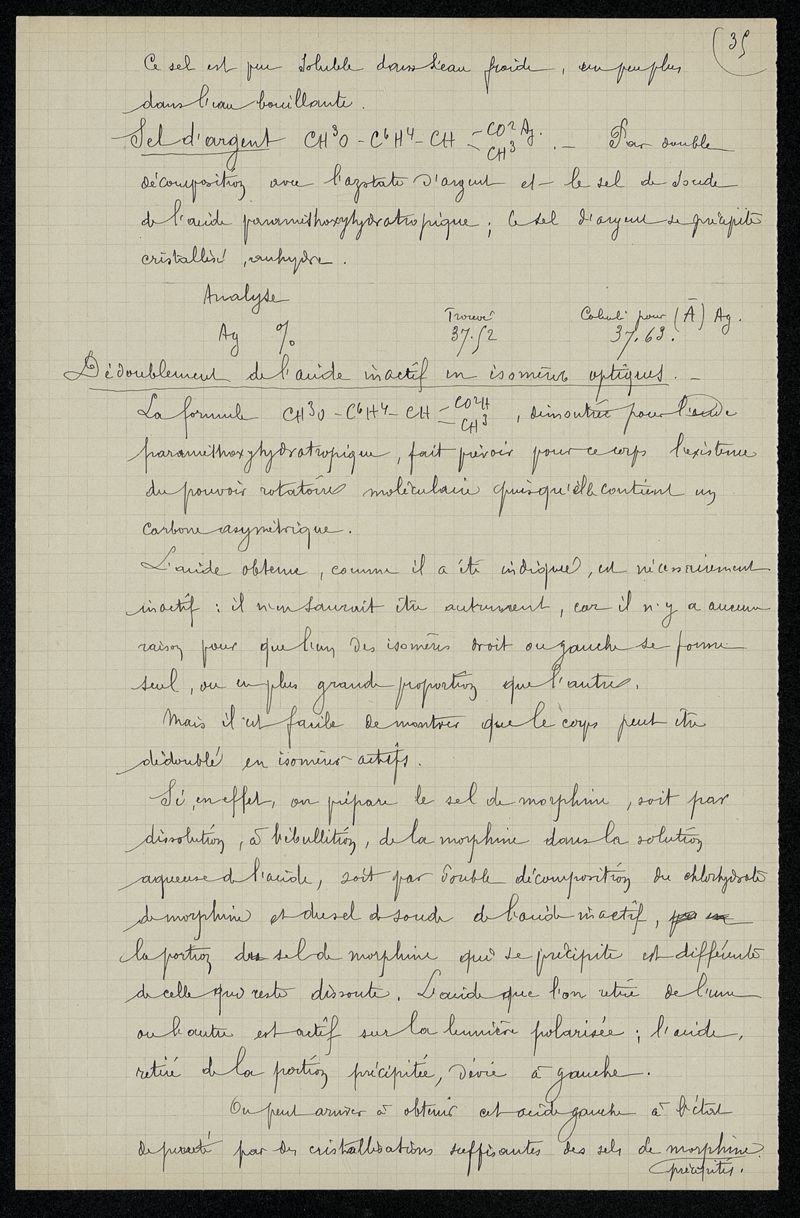 35
Ce sel est peu soluble dans l'eau froide, un peu plus
dans l'eau bouillante.
Sel d'argent CH³O - C⁶H⁴ - CH - CO²Ag. - CH³ . — Par double
décomposition avec l'azotate d'argent et le sel de soude
de l'acide paraméthoxyhydratropique ; le sel d'argent se précipite
cristallisé, anhydre.
Analyse
Trouvé Calculé pour (Ā) Ag.
Ag % 37.52 37.63.
Dédoublement de l'acide inactif en isomères optiques. —
La formule CH³O - C⁶H⁴ - CH - CO²H - CH³ , démontrée pour l'acide
paraméthoxyhydratropique, fait prévoir pour ce corps l'existence
du pouvoir rotatoire moléculaire puisqu'elle contient un
carbone asymétrique.
L'acide obtenu, comme il a été indiqué, est nécessairement
inactif : il n'en saurait être autrement, car il n'y a aucune
raison pour que l'un des isomères droit ou gauche se forme
seul, ou en plus grande proportion que l'autre.
Mais il est facile de montrer que le corps peut être
dédoublé en isomères actifs.
Si, en effet, on prépare le sel de morphine, soit par
dissolution, à l'ébullition, de la morphine dans la solution
aqueuse de l'acide, soit par double décomposition du chlorhydrate
de morphine et du sel de soude de l'acide inactif,
la portion du sel de morphine qui se précipite est différente
de celle qui reste dissoute. L'acide que l'on retire de l'une
ou l'autre est actif sur la lumière polarisée ; l'acide,
retiré de la portion précipitée, dévie à gauche.
On peut arriver à obtenir cet acide gauche à l'état
de pureté par des cristallisations suffisantes des sels de morphine
précipités.